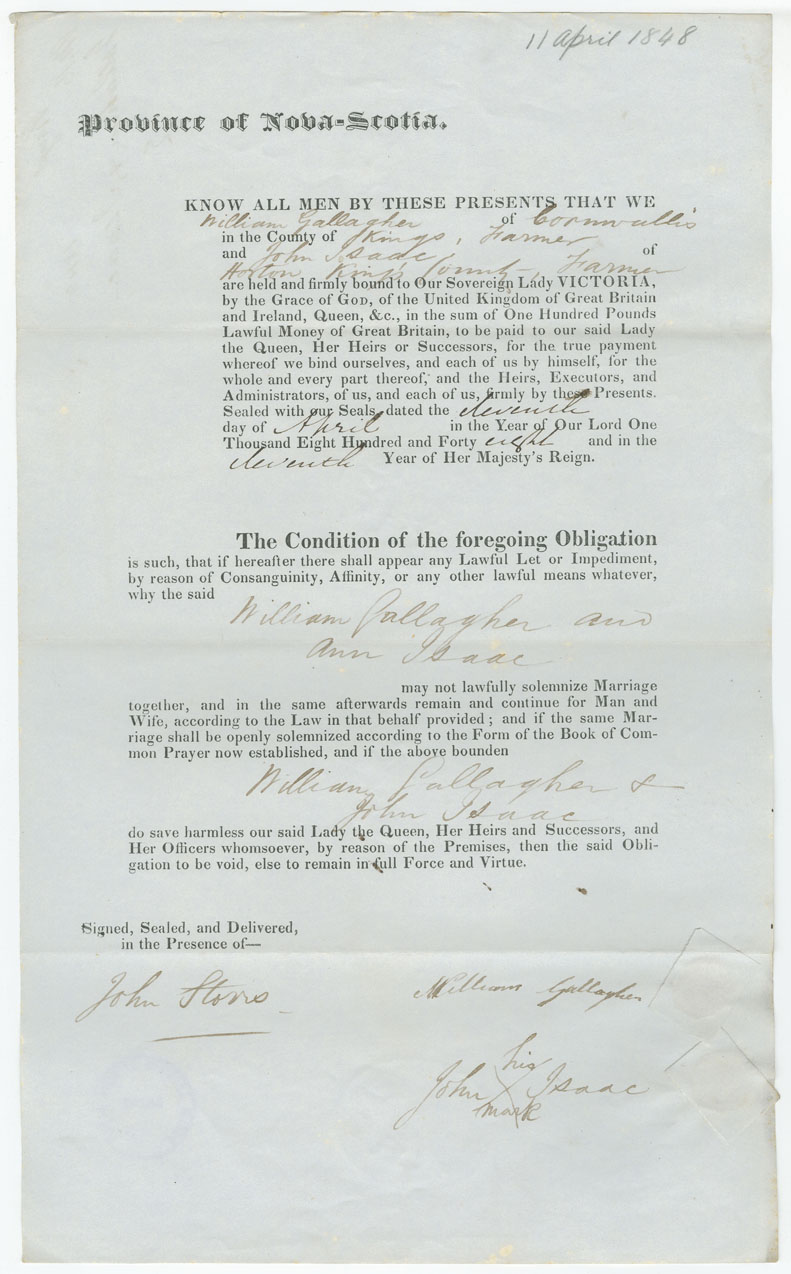 11 April 1848
Province of Nova-Scotia.
KNOW ALL MEN BY THESE PRESENTS THAT WE
William Gallagher of Cornwallis
in the County of Kings, Farmer
and John Isaac of
Horton Kings County, Farmer
are held and firmly bound to Our Sovereign Lady VICTORIA,
by the Grace of GOD, of the United Kingdom of Great Britain
and Ireland, Queen, &c., in the sum of One Hundred Pounds
Lawful Money of Great Britain, to be paid to our said Lady
the Queen, Her Heirs or Successors, for the true payment
whereof we bind ourselves, and each of us by himself, for the
whole and every part thereof, and the Heirs, Executors, and
Administrators, of us, and each of us, firmly by these Presents.
Sealed with our Seals, dated the eleventh
day of April in the Year of Our Lord One
Thousand Eight Hundred and Forty eight and in the
eleventh Year of Her Majesty's Reign.
The Condition of the foregoing Obligation
is such, that if hereafter there shall appear any Lawful Let or Impediment,
by reason of Consanguinity, Affinity, or any other lawful means whatever,
why the said
William Gallagher and
Ann Isaac
may not lawfully solemnize Marriage
together, and in the same afterwards remain and continue for Man and
Wife, according to the Law in that behalf provided; and if the same Mar-
riage shall be openly solemnized according to the Form of the Book of Com-
mon Prayer now established, and if the above bounden
William Gallagher &
John Isaac
do save harmless our said Lady the Queen, Her Heirs and Successors, and
Her Officers whomsoever, by reason of the Premises, then the said Obli-
gation to be void, else to remain in full Force and Virtue.
Signed, Sealed, and Delivered,
in the Presence of—
John Storrs
William Gallagher
his
John X Isaac
mark